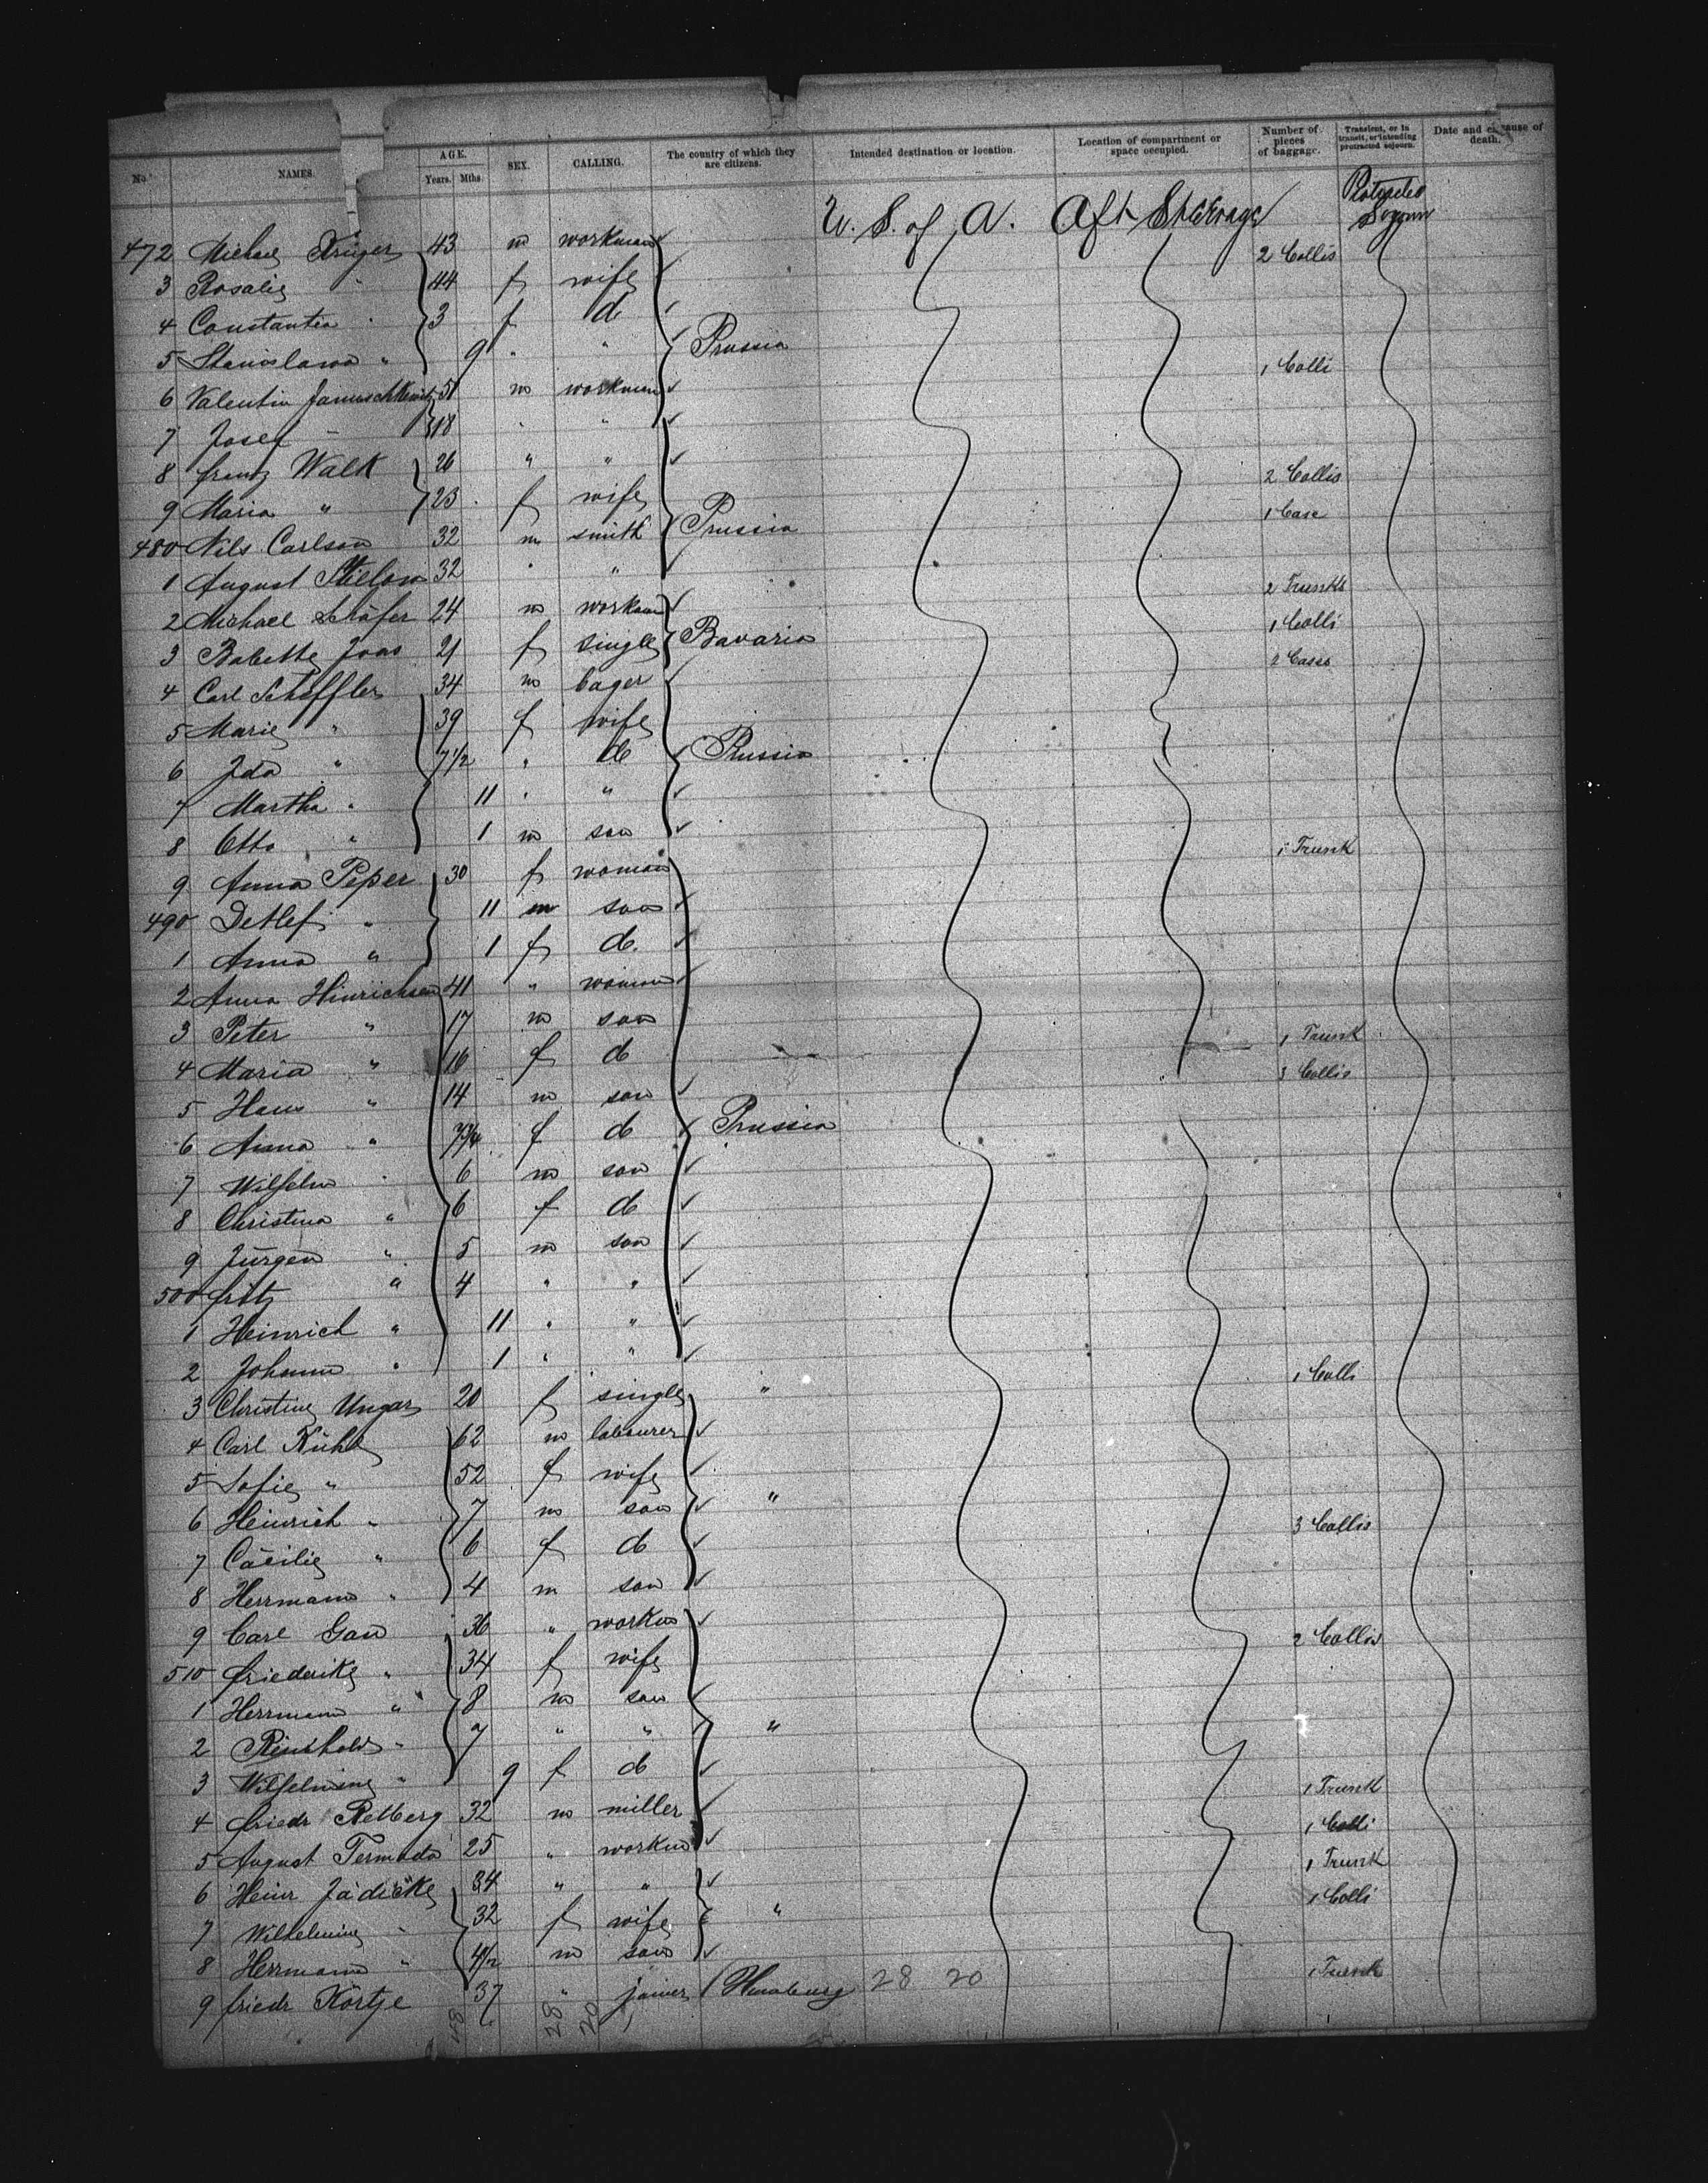 No. NAMES. AGE. Years. Mths. SEX. CALLING. The country of which they are citizens. Intended destination or location. Location of compartment or space occupied. Number of pieces of baggage. Transient, or in transit, or intending protracted sojourn. Date and cause of death.
U. S. of A. Aft Steerage Protracted Sojourn
472 Michael Krüger 43 m workman 2 Collis
3 Rosalie " 44 f wife
4 Constantia " 3 f d
5 Stanislawa " 9 " " Prussia 1 Colli
6 Valentin 51 m workman
7 Josef " 18 " "
8 Frantz Walk 26 " " 2 Collis
9 Maria " 23 f wife 1 Case
480 Nils Carlson 32 m smith Prussia
1 August Thielow 32 " " 2 Trunks
2 Michael Schäfer 24 m workman 1 Colli
3 Babette Joas 21 f single Bavaria 2 Cases
4 Carl Scheffler 34 m
5 Marie " 39 f wife
6 Ida " 7 1/2 " d Prussia
7 Martha " 11 " "
8 Otto " 1 m son 1 Trunk
9 Anna Peper 30 f woman
490 Detlef " 11 m son
1 Anna " 1 f d.
2 Anna Hinrichsen 41 " woman
3 Peter " 17 m son 1 Trunk
4 Maria " 16 f d 3 Collis
5 Hans " 14 m son
6 Anna " 7 3/4 f d Prussia
7 Wilhelm " 6 m son
8 Christina " 6 f d
9 Jürgen " 5 m son
500 Fritz " 4 " "
1 Heinrich " 11 " "
2 Johann " 1 " " 1 Colli
3 Christine Ungar 20 f single "
4 Carl Kühl 62 m labourer
5 Sofie " 52 f wife
6 Heinrich " 7 m son " 3 Collis
7 Cäcilie " 6 f d
8 Herrmann " 4 m son
9 Carl Gau 36 " workm 2 Collis
510 Friederike " 34 f wife
1 Herrmann " 8 m son
2 Reinhold " 7 " " "
3 Wilhelmine " 9 f d 1 Trunk
4 Friedr Retberg 32 m miller 1 Colli
5 August 25 " workm 1 Trunk
6 Heinr Jädicke 34 " " 1 Colli
7 Wilhelmine " 32 f wife "
8 Herrmann " 4 1/2 m son 1 Trunk
9 Friedr Körtje 37 " joiner Hamburg 28 20
28 20